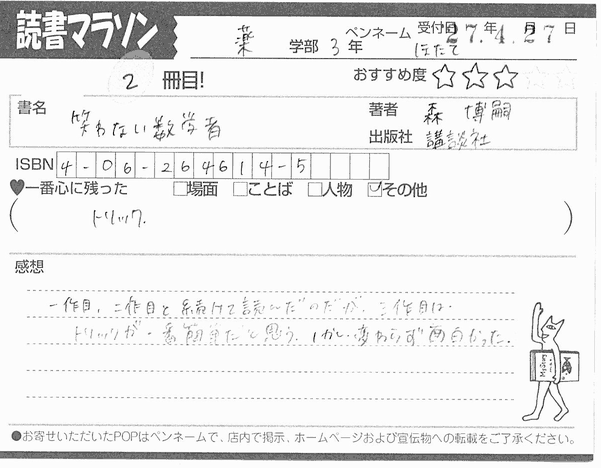 読書マラソン
薬 学部 3年 ペンネーム ほたて 受付日 27.4.27 年 月 日
2 冊目! おすすめ度 ☆☆☆
書名 笑わない数学者
著者 森 博嗣
出版社 講談社
ISBN 4-06-264614-5
♥一番心に残った □場面 □ことば □人物 ☑その他
( トリック. )
感想
一作目, 二作目と続けて読んだのだが, 三作目は
トリックが一番簡単だと思う. しかし変わらず面白かった.
●お寄せいただいたPOPはペンネームで、店内で掲示、ホームページおよび宣伝物への転載をご了承ください。